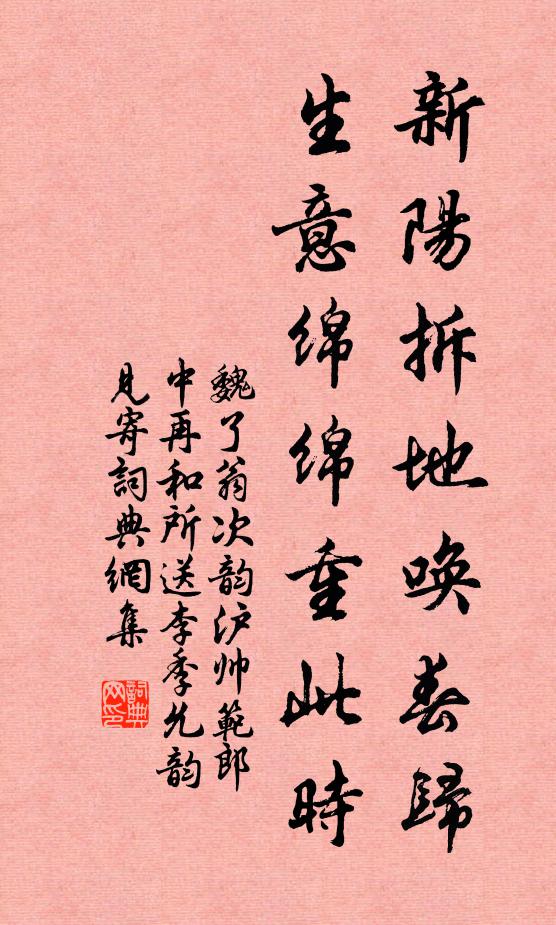 新陽拆地喚春歸
生意绵绵重此時
魏了翁次韵泸帅範郎
中再和所送李季允韵
見寄詞典網集
詞典网印